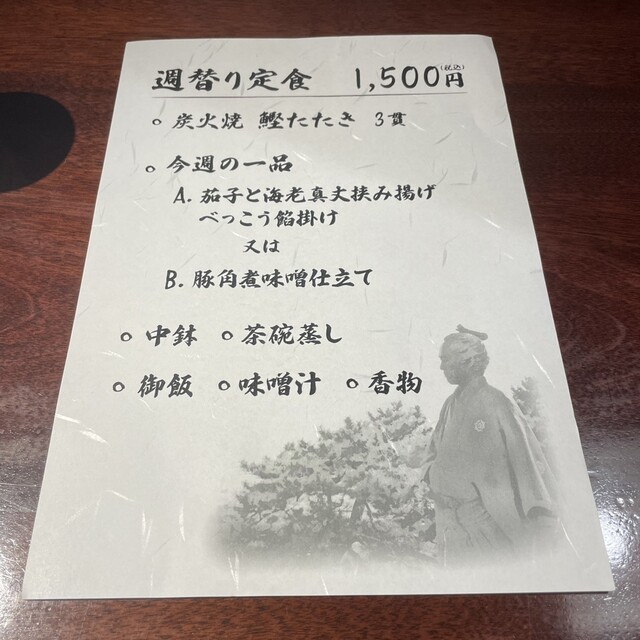 週替り定食 1,500円(税込)
○ 炭火焼 鰹たたき 3貫
○ 今週の一品
A. 茄子と海老真丈挟み揚げ
べっこう餡掛け
又は
B. 豚角煮味噌仕立て
○ 中鉢 ○ 茶碗蒸し
○ 御飯 ○ 味噌汁 ○ 香物